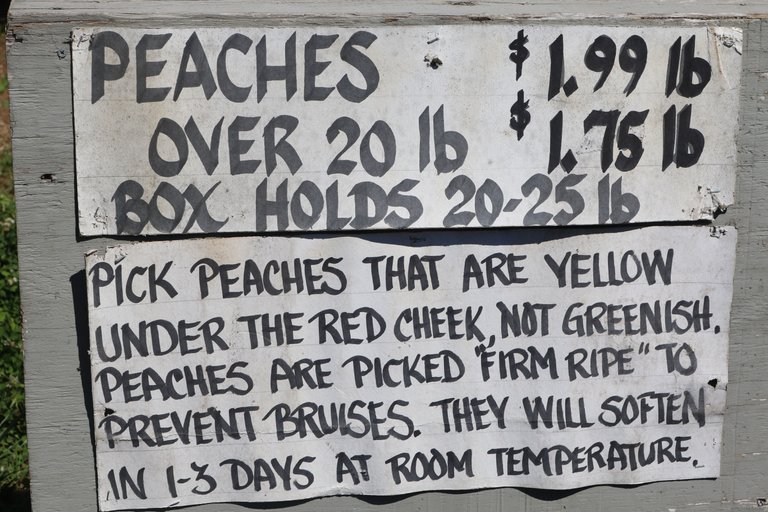 PEACHES $1.99 lb
OVER 20 lb $1.75 lb
BOX HOLDS 20-25 lb
PICK PEACHES THAT ARE YELLOW
UNDER THE RED CHEEK, NOT GREENISH.
PEACHES ARE PICKED "FIRM RIPE" TO
PREVENT BRUISES. THEY WILL SOFTEN
IN 1-3 DAYS AT ROOM TEMPERATURE.